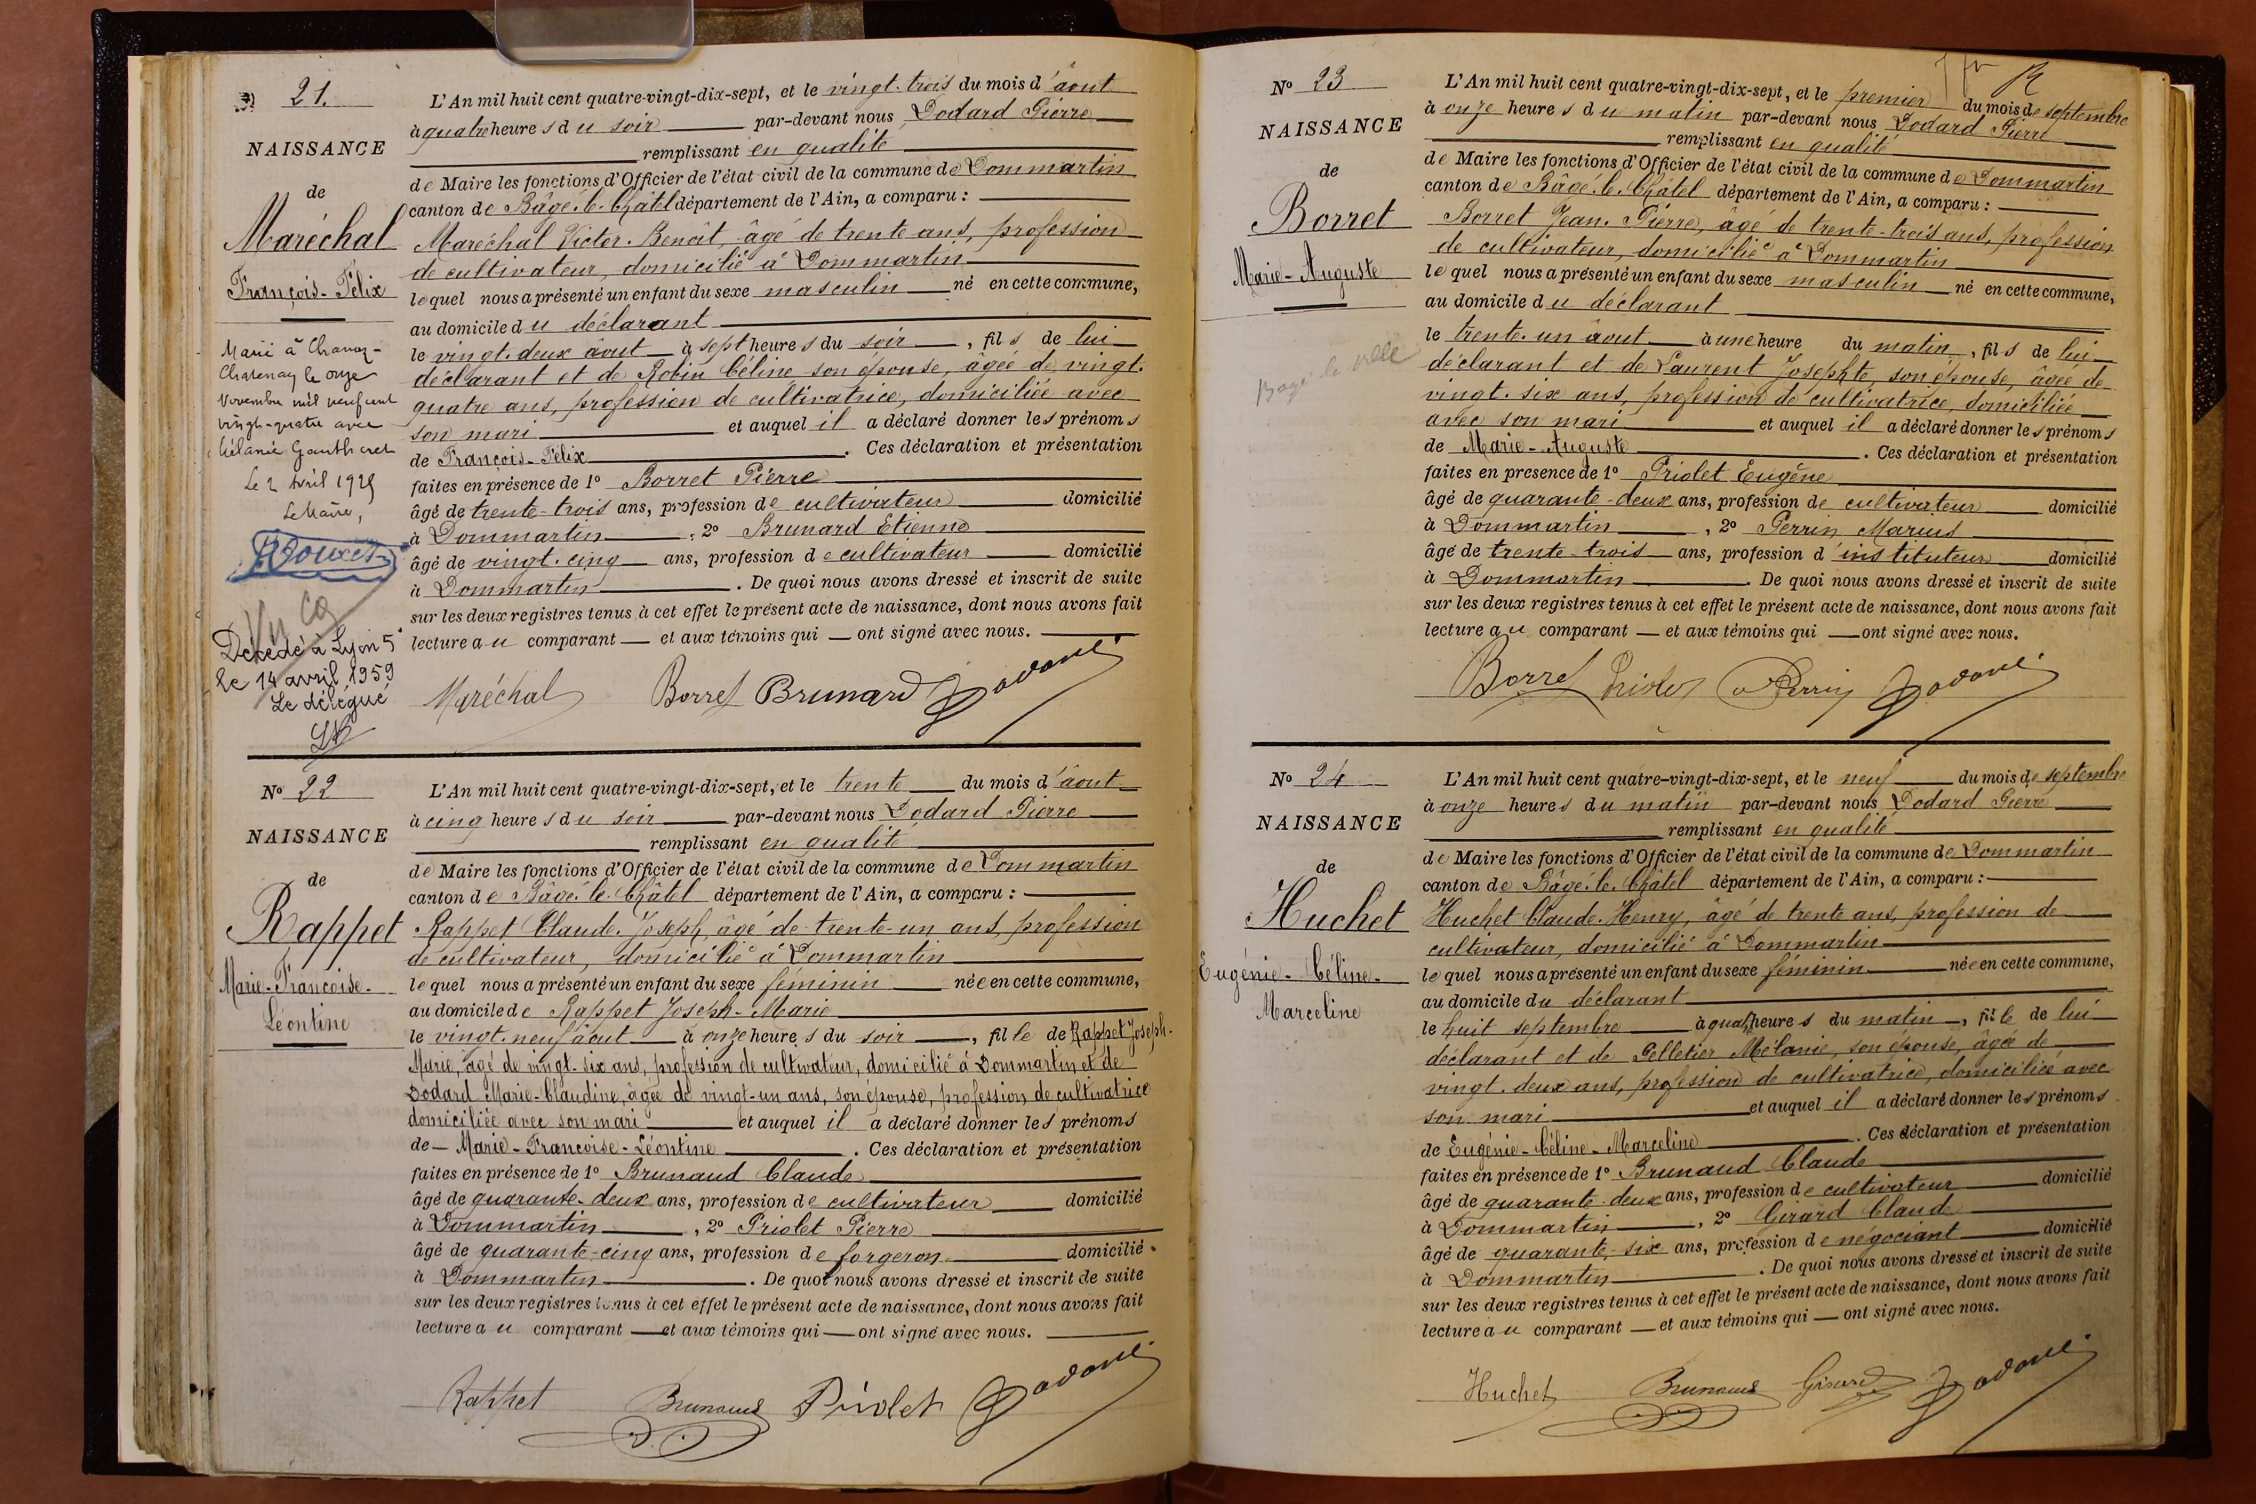 21.
NAISSANCE
de
Maréchal
François-Félix
Marié à Chanoz-
Chatenay le onze
Novembre mil neuf cent
vingt-quatre avec
Mélanie Gautheret
Le 2 Avril 1925
Le Maire,
Vu
Décédé à Lyon 5e
le 14 avril 1959
Le délégué
L'An mil huit cent quatre-vingt-dix-sept, et le vingt-trois du mois d'août
à quatre heures du soir par-devant nous Dodard Pierre
remplissant en qualité
de Maire les fonctions d'Officier de l'état civil de la commune de Dommartin
canton de Bâgé-le-Châtel département de l'Ain, a comparu :
Maréchal Victor-Benoît, âgé de trente ans, profession
de cultivateur, domicilié à Dommartin
lequel nous a présenté un enfant du sexe masculin né en cette commune,
au domicile du déclarant
le vingt-deux août à sept heures du soir, fils de lui
déclarant et de Robin Céline son épouse, âgée de vingt-
quatre ans, profession de cultivatrice, domiciliée avec
son mari et auquel il a déclaré donner les prénoms
de François-Félix. Ces déclaration et présentation
faites en présence de 1º Borret Pierre
âgé de trente-trois ans, profession de cultivateur domicilié
à Dommartin, 2º Brunard Etienne
âgé de vingt-cinq ans, profession de cultivateur domicilié
à Dommartin. De quoi nous avons dressé et inscrit de suite
sur les deux registres tenus à cet effet le présent acte de naissance, dont nous avons fait
lecture au comparant et aux témoins qui ont signé avec nous.
Maréchal Borret Brunard Dodard
Nº 22
NAISSANCE
de
Rappet
Marie-Françoise-
Léontine
L'An mil huit cent quatre-vingt-dix-sept, et le trente du mois d'août
à cinq heures du soir par-devant nous Dodard Pierre
remplissant en qualité
de Maire les fonctions d'Officier de l'état civil de la commune de Dommartin
canton de Bâgé-le-Châtel département de l'Ain, a comparu :
Rappet Claude-Joseph, âgé de trente-un ans, profession
de cultivateur, domicilié à Dommartin
lequel nous a présenté un enfant du sexe féminin née en cette commune,
au domicile de Rappet Joseph-Marie
le vingt-neuf août à onze heures du soir, fille de Rappet Joseph-
Marie, âgé de vingt-six ans, profession de cultivateur, domicilié à Dommartin et de
Dodard Marie-Claudine, âgée de vingt-un ans, son épouse, profession de cultivatrice
domiciliée avec son mari et auquel il a déclaré donner les prénoms
de Marie-Françoise-Léontine. Ces déclaration et présentation
faites en présence de 1º Brunaud Claude
âgé de quarante-deux ans, profession de cultivateur domicilié
à Dommartin, 2º Priolet Pierre
âgé de quarante-cinq ans, profession de forgeron domicilié
à Dommartin. De quoi nous avons dressé et inscrit de suite
sur les deux registres tenus à cet effet le présent acte de naissance, dont nous avons fait
lecture au comparant et aux témoins qui ont signé avec nous.
Rappet Brunaud Priolet Dodard
Nº 23
NAISSANCE
de
Borret
Marie-Auguste
Bagé la ville
L'An mil huit cent quatre-vingt-dix-sept, et le premier du mois de septembre
à onze heures du matin par-devant nous Dodard Pierre
remplissant en qualité
de Maire les fonctions d'Officier de l'état civil de la commune de Dommartin
canton de Bâgé-le-Châtel département de l'Ain, a comparu :
Borret Jean-Pierre, âgé de trente-trois ans, profession
de cultivateur, domicilié à Dommartin
lequel nous a présenté un enfant du sexe masculin né en cette commune,
au domicile du déclarant
le trente-un août à une heure du matin, fils de lui
déclarant et de Laurent Josephte, son épouse, âgée de
vingt-six ans, profession de cultivatrice, domiciliée
avec son mari et auquel il a déclaré donner les prénoms
de Marie-Auguste. Ces déclaration et présentation
faites en présence de 1º Priolet Eugène
âgé de quarante-deux ans, profession de cultivateur domicilié
à Dommartin, 2º Perrin Marius
âgé de trente-trois ans, profession d'instituteur domicilié
à Dommartin. De quoi nous avons dressé et inscrit de suite
sur les deux registres tenus à cet effet le présent acte de naissance, dont nous avons fait
lecture au comparant et aux témoins qui ont signé avec nous.
Borret Priolet Perrin Dodard
Nº 24
NAISSANCE
de
Huchet
Eugénie-Céline-
Marceline
L'An mil huit cent quatre-vingt-dix-sept, et le neuf du mois de septembre
à onze heures du matin par-devant nous Dodard Pierre
remplissant en qualité
de Maire les fonctions d'Officier de l'état civil de la commune de Dommartin
canton de Bâgé-le-Châtel département de l'Ain, a comparu :
Huchet Claude-Henry, âgé de trente ans, profession de
cultivateur, domicilié à Dommartin
lequel nous a présenté un enfant du sexe féminin née en cette commune,
au domicile du déclarant
le huit septembre à quatre heures du matin, fille de lui
déclarant et de Pelletier Mélanie, son épouse, âgée de
vingt-deux ans, profession de cultivatrice, domiciliée avec
son mari et auquel il a déclaré donner les prénoms
de Eugénie-Céline-Marceline. Ces déclaration et présentation
faites en présence de 1º Brunaud Claude
âgé de quarante-deux ans, profession de cultivateur domicilié
à Dommartin, 2º Girard Claude
âgé de quarante-six ans, profession de négociant domicilié
à Dommartin. De quoi nous avons dressé et inscrit de suite
sur les deux registres tenus à cet effet le présent acte de naissance, dont nous avons fait
lecture au comparant et aux témoins qui ont signé avec nous.
Huchet Brunaud Girard Dodard